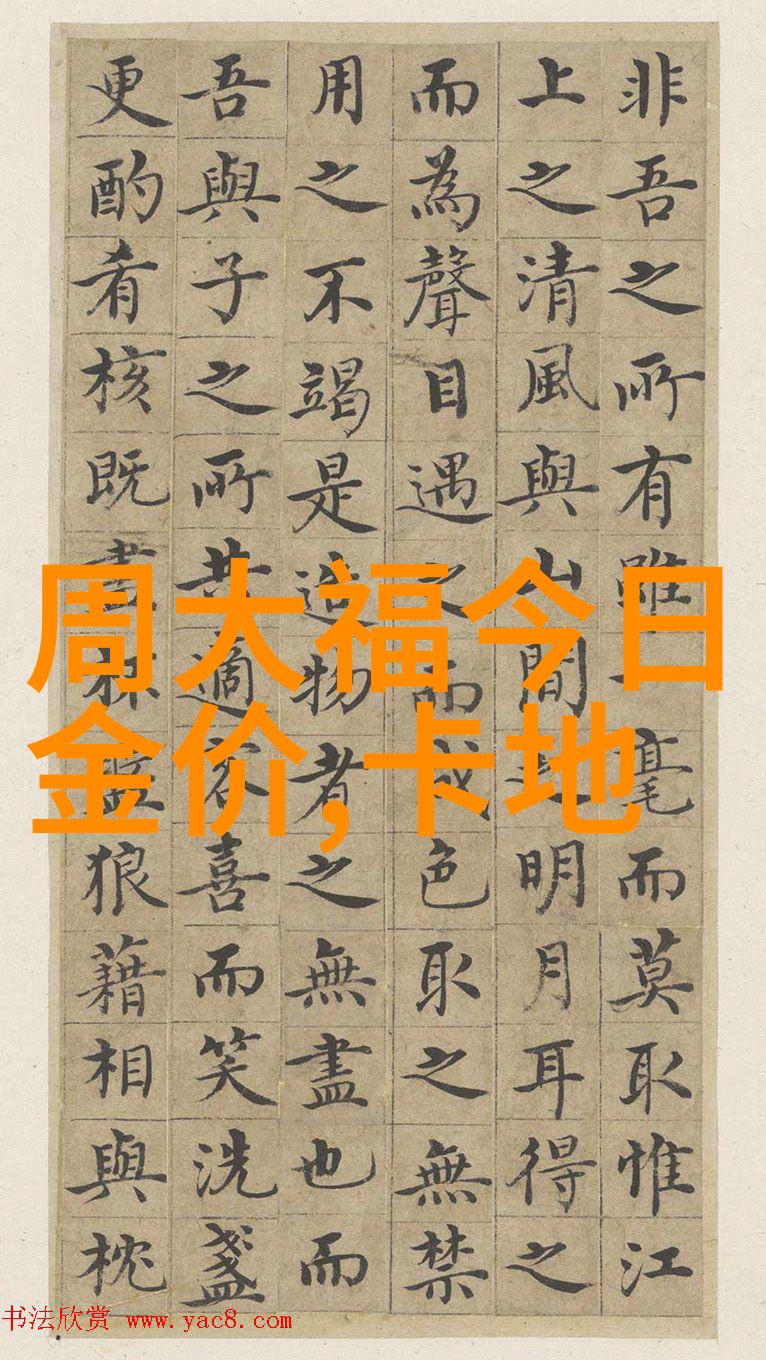 非吾之所有雖一毫而莫取惟江
上之清風與山間之明月耳得之
而為聲目遇之而成色取之無禁
用之不竭是造物者之無盡也而
吾與子之所共適客喜而笑洗盞
更酌肴核既盡杯盤狼藉相與枕
周大福今日
金价,卡地
书法欣赏 www.yac8.com